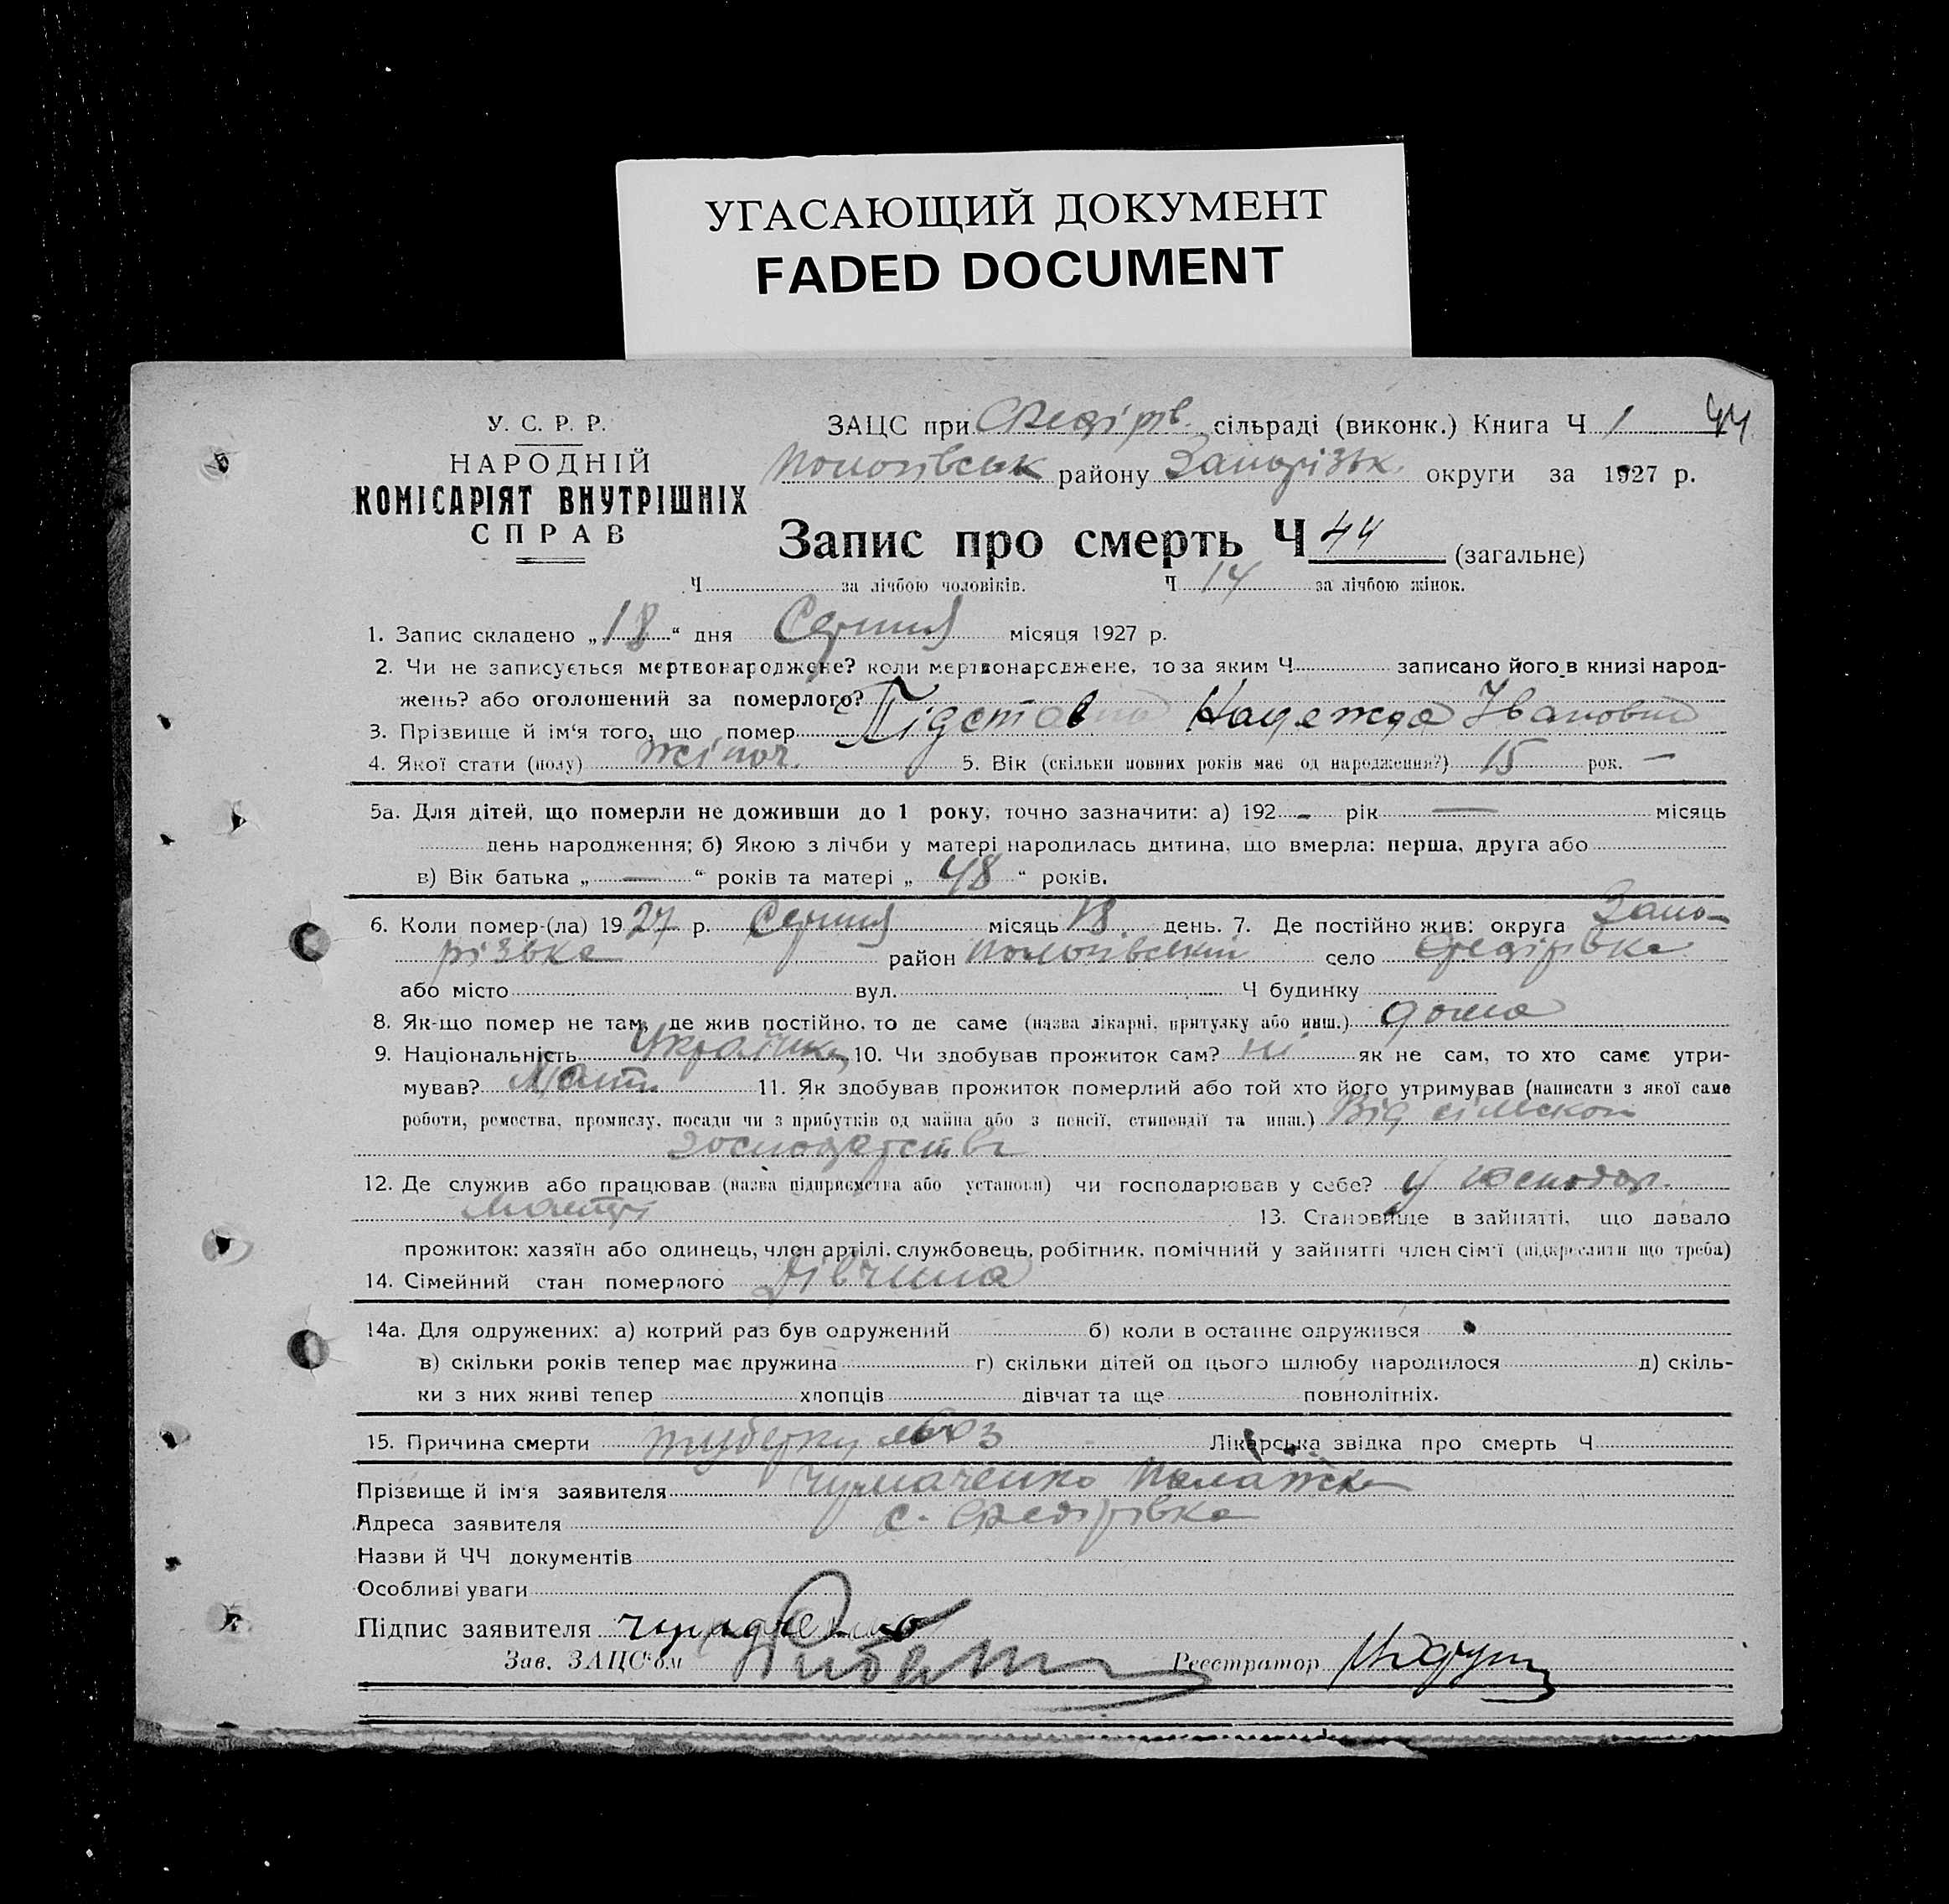 УГАСАЮЩИЙ ДОКУМЕНТ
FADED DOCUMENT
У. С. Р. Р.
НАРОДНІЙ
КОМІСАРІЯТ ВНУТРІШНІХ
СПРАВ
ЗАЦС при Федірів. сільраді (виконк.) Книга Ч 1 44
Пологівськ району Запорізьк. округи за 1927 р.
Запис про смерть Ч 44 (загальне)
Ч за лічбою чоловіків. Ч 14 за лічбою жінок.
1. Запис складено „18“ дня Серпня місяця 1927 р.
2. Чи не записується мертвонароджене? коли мертвонароджене, то за яким Ч записано його в книзі народ-
жень? або оголошений за померлого?
3. Прізвище й ім‘я того, що помер Надежда Івановна
4. Якої стати (полу) жіноч. 5. Вік (скільки повних років має од народження?) 15 рок. —
5а. Для дітей, що померли не доживши до 1 року, точно зазначити: а) 192 - рік — місяць
день народження; б) Якою з лічби у матері народилась дитина, що вмерла: перша, друга або
в) Вік батька „ — “ років та матері „ 48 “ років.
6. Коли помер-(ла) 1927 р. Серпня місяць 18 день. 7. Де постійно жив: округа Запо-
різька район Пологівський село Федірівка
або місто вул. Ч будинку
8. Як-що помер не там, де жив постійно, то де саме (назва лікарні, притулку або инш.) дома
9. Національність Українка 10. Чи здобував прожиток сам? ні як не сам, то хто саме утри-
мував? Мати 11. Як здобував прожиток померлий або той хто його утримував (написати з якої саме
роботи, ремества, промислу, посади чи з прибутків од майна або з пенсії, стипендії та инш.) Від сільского
господарства
12. Де служив або працював (назва підприємства або установи) чи господарював у себе? у господар.
матері 13. Становище в зайнятті, що давало
прожиток: хазяїн або одинець, член артілі, службовець, робітник, помічний у зайнятті член сім‘ї (підкреслити що треба)
14. Сімейний стан померлого дівчина
14а. Для одружених: а) котрий раз був одружений б) коли в останнє одружився
в) скільки років тепер має дружина г) скільки дітей од цього шлюбу народилося д) скіль-
ки з них живі тепер хлопців дівчат та ще повнолітніх.
15. Причина смерти туберкульоз Лікарська звідка про смерть Ч
Прізвище й ім‘я заявителя Чумаченко Палажка
Адреса заявителя с. Федірівка
Назви й ЧЧ документів
Особливі уваги
Підпис заявителя
Зав. ЗАЦС‘ом Реєстратор